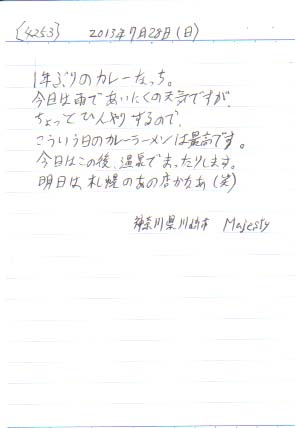 {4253} 2013年7月28日(日)
1年ぶりのカレーなっち。
今日は雨であいにくの天気ですが、
ちょっとひんやりするので、
こういう日のカレーラーメンは最高です。
今日はこの後、温泉でまったりします。
明日は、札幌のあの店かなあ(笑)
神奈川県川崎市 Majesty